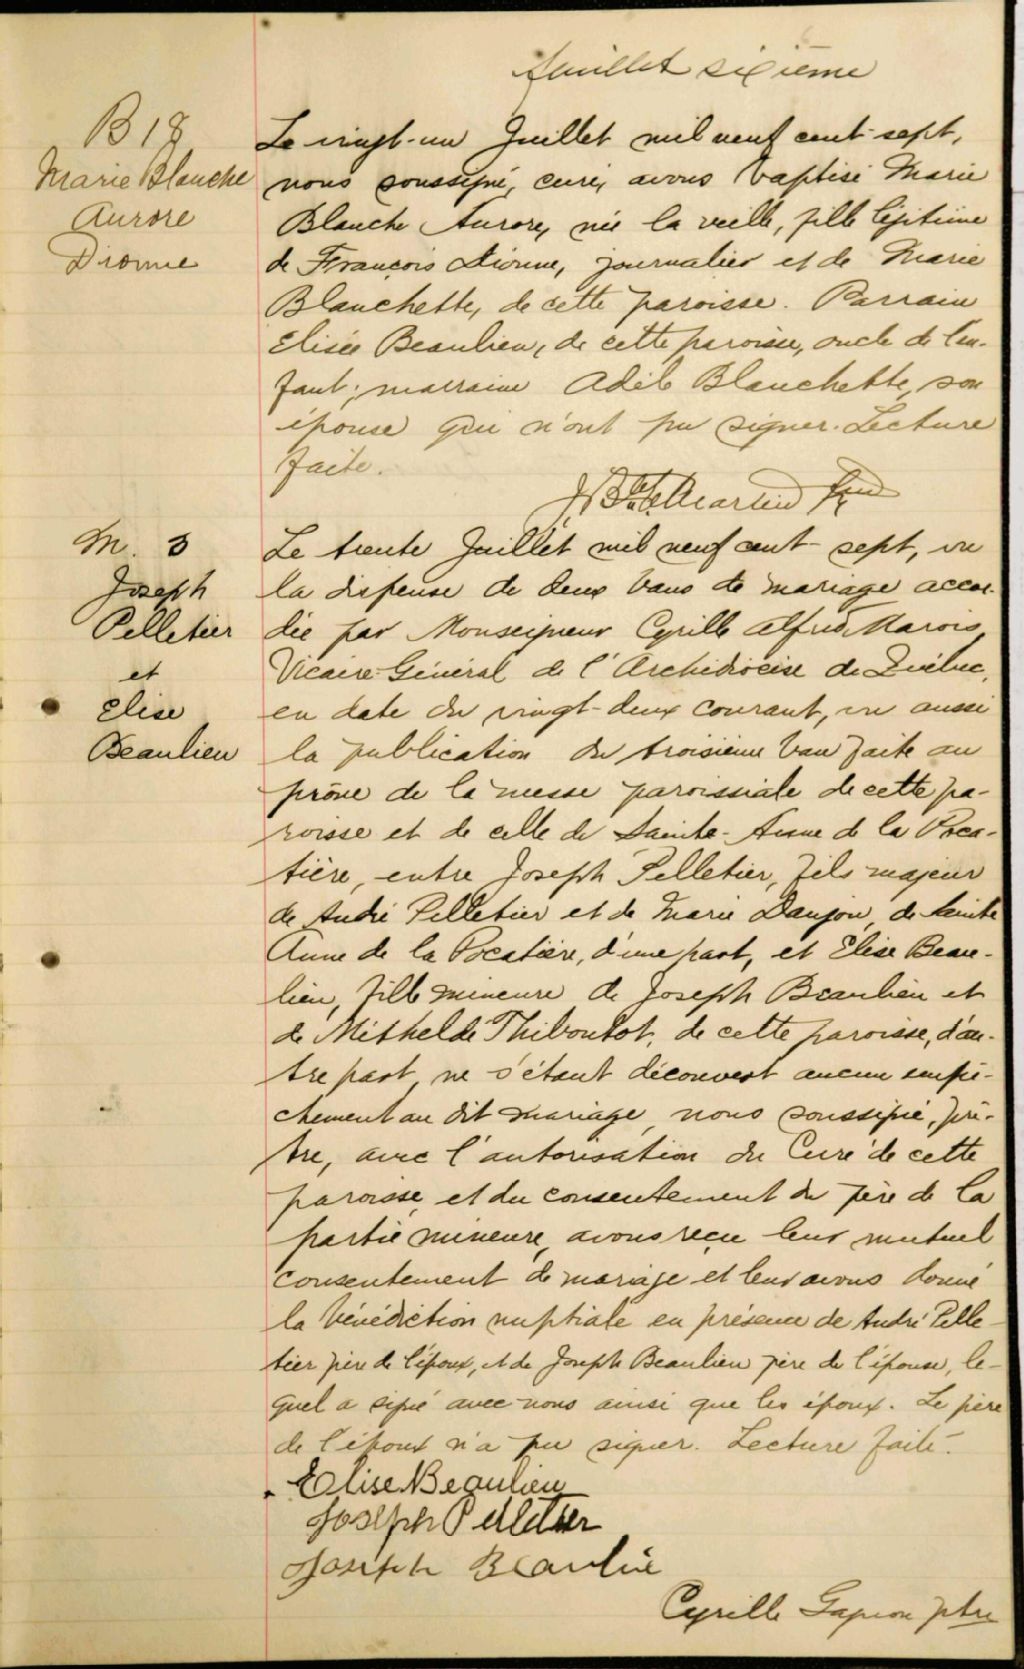 feuillet sixième
B 18
Marie Blanche
Aurore
Dionne
Le vingt-un Juillet mil neuf cent-sept,
nous soussigné, curé, avons baptisé Marie
Blanche Aurore, née la veille, fille légitime
de François Dionne, journalier et de Marie
Blanchette, de cette paroisse. Parrain
Elisée Beaulieu, de cette paroisse, oncle de l'en-
fant; marraine Adèle Blanchette, son
épouse qui n'ont pu signer. Lecture
faite.
Martin
M. 3
Joseph
Pelletier
et
Elise
Beaulieu
Le trente Juillet mil neuf cent-sept, vu
la dispense de deux bans de mariage accor-
dée par Monseigneur Cyrille Alfred Marois,
Vicaire-Général de l'Archidiocèse de Québec,
en date du vingt-deux courant, vu aussi
la publication du troisième ban faite au
prône de la messe paroissiale de cette pa-
roisse et de celle de Sainte-Anne de la Poca-
tière, entre Joseph Pelletier, fils majeur
de André Pelletier et de Marie Danjou, de Sainte
Anne de la Pocatière, d'une part, et Elise Beau-
lieu, fille mineure de Joseph Beaulieu et
de Methelde Thiboutot, de cette paroisse, d'au-
tre part, ne s'étant découvert aucun empê-
chement au dit mariage, nous soussigné, prê-
tre, avec l'autorisation du Curé de cette
paroisse, et du consentement du père de la
partie mineure, avons reçu leur mutuel
consentement de mariage et leur avons donné
la bénédiction nuptiale en présence de André Pelle-
tier père de l'époux, et de Joseph Beaulieu père de l'épouse, le-
quel a signé avec nous ainsi que les époux. Le père
de l'époux n'a pu signer. Lecture faite.
Elise Beaulieu
Joseph Pelletier
Joseph Beaulie
Cyrille Gagnon ptre